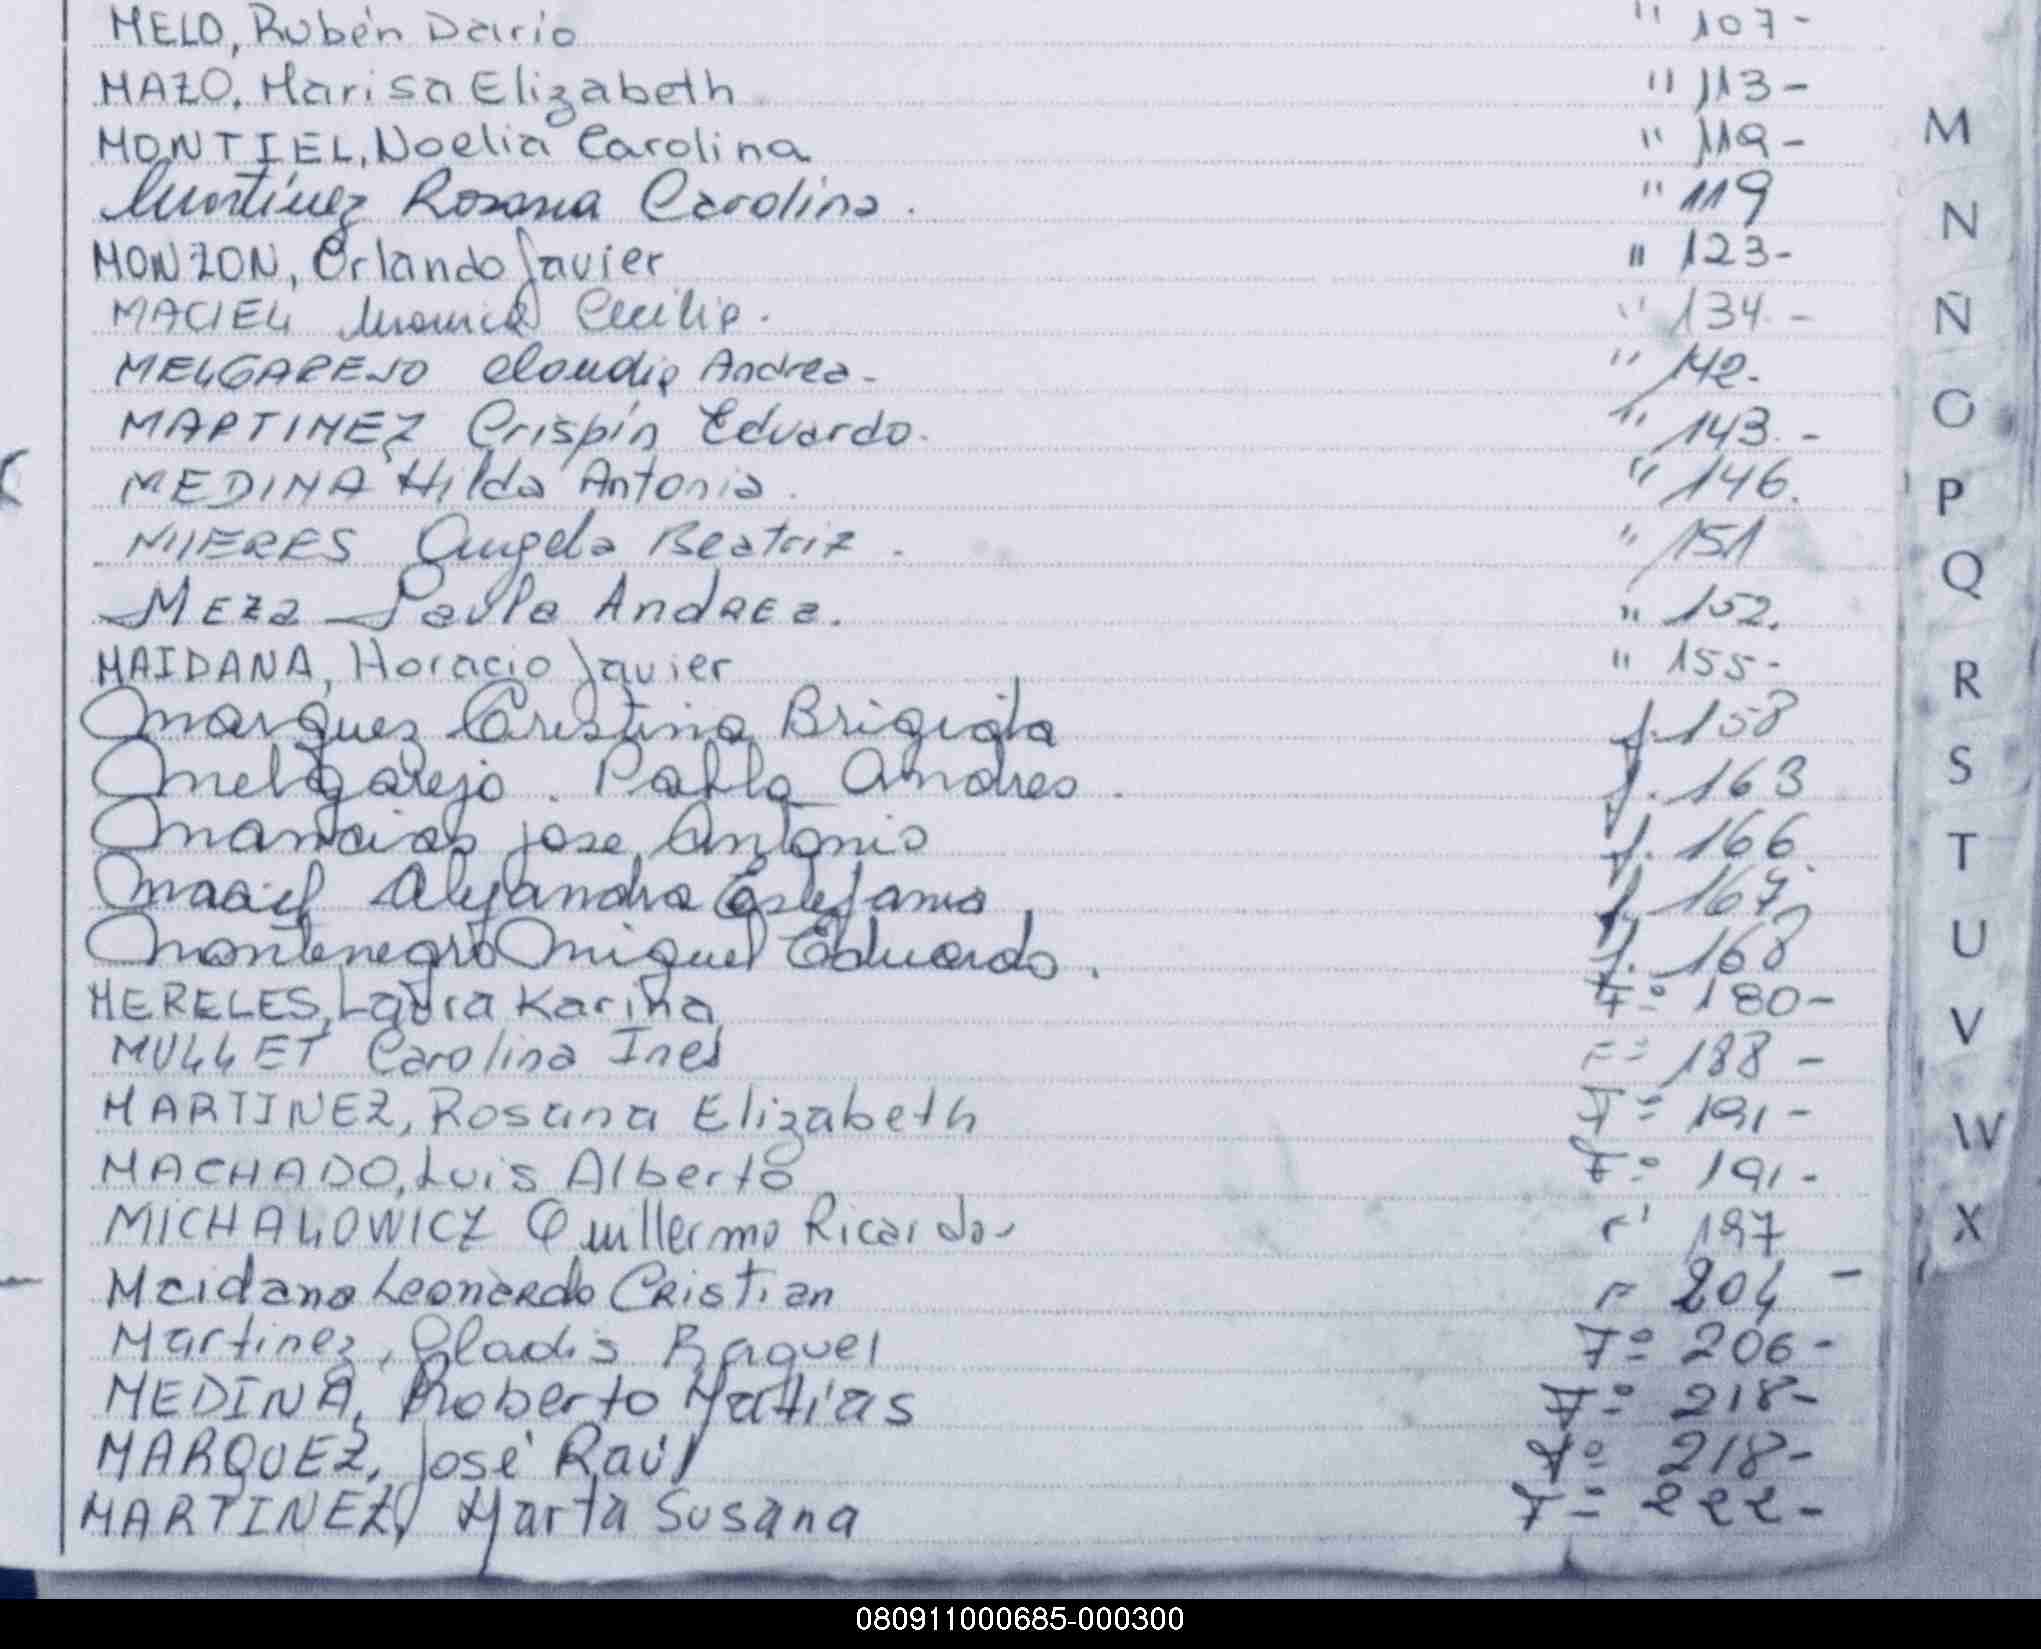 MELO, Rubén Darío " 107-
MAZO, Marisa Elizabeth " 113-
MONTIEL, Noelia Carolina " 119-
Martínez Rosana Carolina. " 119
MONZON, Orlando Javier " 123-
MACIEL Monica Cecilia. " 134-
MELGAREJO Claudia Andrea- " 142-
MARTINEZ Crispín Eduardo. " 143.-
MEDINA Hilda Antonia. " 146.
NIERES Angela Beatriz. " 151
MEZa Paula AndREa. " 152.
MAIDANA, Horacio Javier " 155-
Marquez Cristina Brigida f. 158
Melgarejo. Pablo Andres. f. 163
Mancias jose Antonio f. 166.
Maciel Alejandra Estefania f. 167
Montenegro Miguel Eduardo. f. 168
MERELES, Laura Karina Fº 180-
MULLET Carolina Ines Fº 188-
MARTINEZ, Rosana Elizabeth Fº 191-
MACHADO, Luis Alberto Fº 191-
MICHALOWICZ Guillermo Ricardo- F' 197
Maidana Leonardo Cristian F 204 -
Martinez, Gladis Raquel Fº 206-
MEDINA, Roberto Matías Fº 218-
MARQUEZ, José Raúl Fº 218-
MARTINEZ, Marta Susana Fº 222-
M
N
Ñ
O
P
Q
R
S
T
U
V
W
X
080911000685-000300